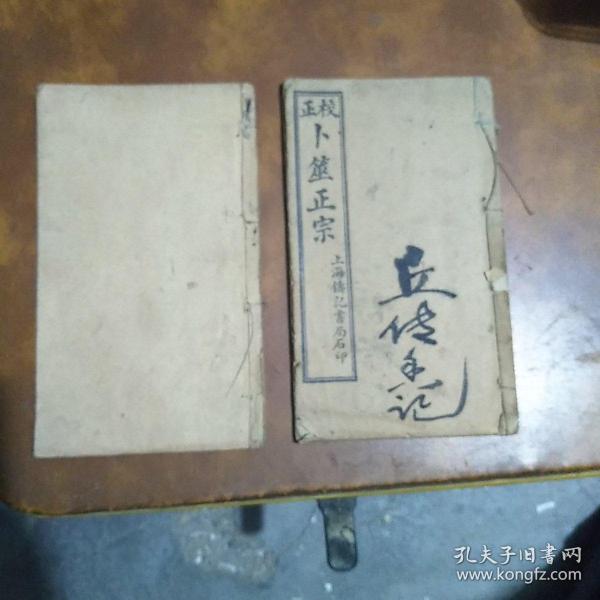 校正
卜筮正宗
上海鑄記書局石印
丘傳手記
孔夫子旧书网
www.kongfz.com